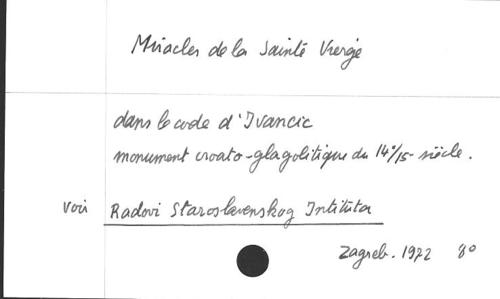 Miracles de la Sainte Vierge
dans le code d'Ivancic
monument croato-glagolitique du 14e/15e siècle.
voir Radovi Staroslavenskog Instituta
Zagreb. 1972 8°